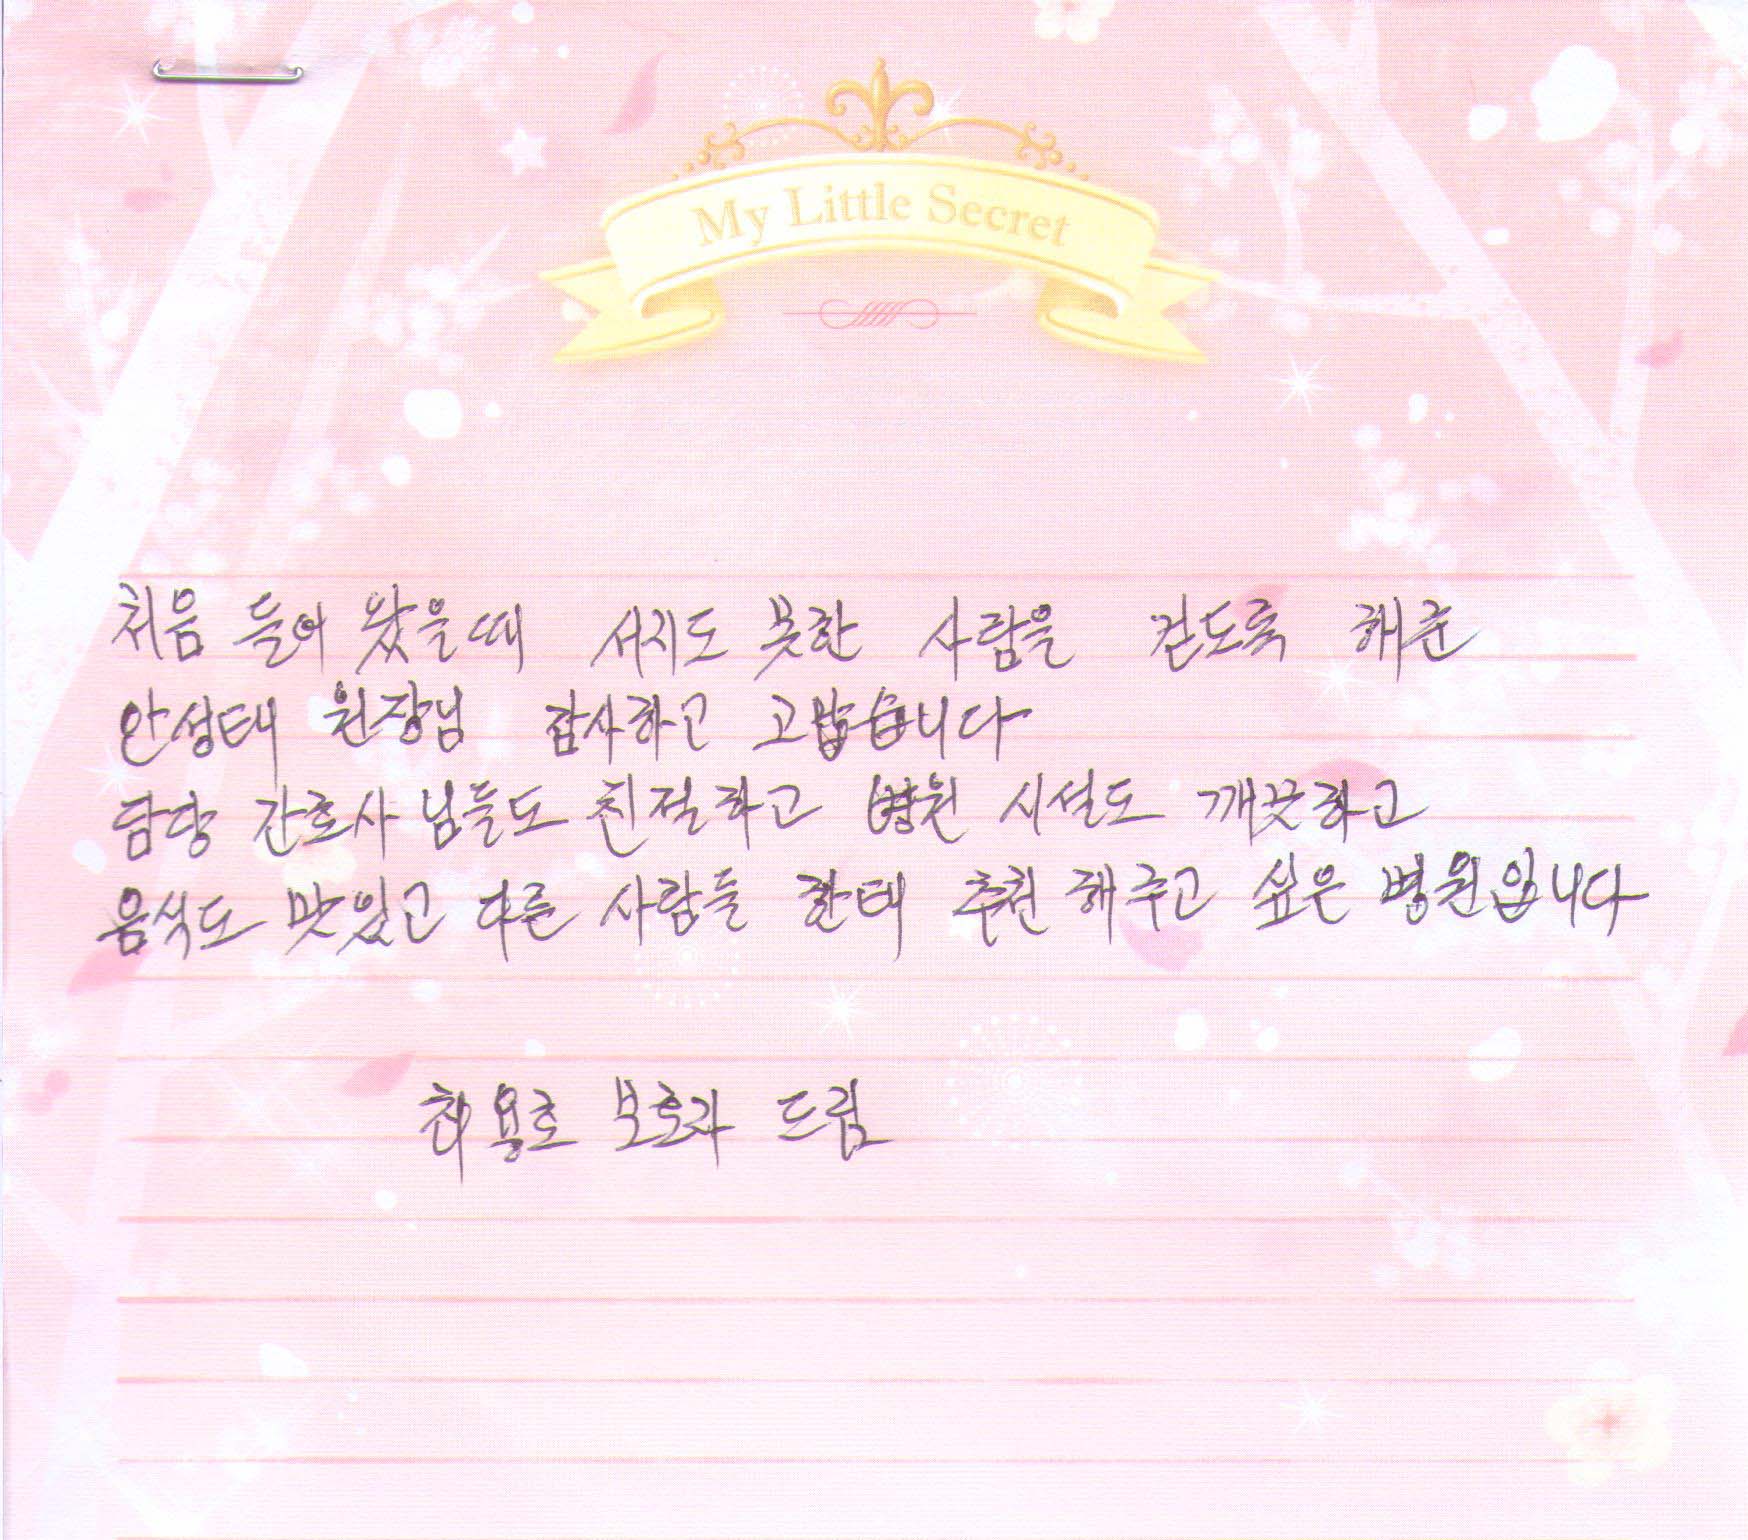 My Little Secret
처음 들어 왔을때 서지도 못한 사람을 걷도록 해준
안성태 원장님 감사하고 고맙습니다
담당 간호사 님들도 친절하고 병원 시설도 깨끗하고
음식도 맛있고 다른 사람들 한태 추천 해주고 싶은 병원입니다
최용호 보호자 드림